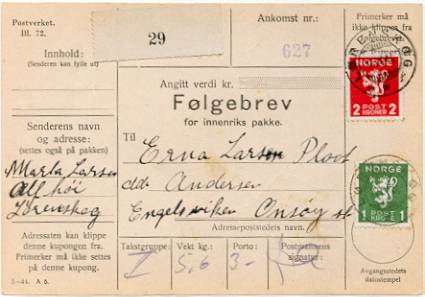 Postverket.
Bl. 72.
Innhold:
(Senderen kan fylle ut)
29
Ankomst nr.:
627
Primerker må
ikke klippes fra
følgebrevet.
NORGE
2 POST KRONER 2
Angitt verdi kr.
Følgebrev
for innenriks pakke.
Senderens navn
og adresse:
(settes også på pakken)
Marta Larsen
Lørenskog
Til
Erna Larsen
Andersen
Engelsviken Onsøy st
Adressepoststedets navn.
NORGE
1 POST KRONE 1
Adressaten kan klippe
denne kupongen fra.
Primerker må ikke settes
på denne kupong.
Takstgruppe:
I
Vekt kg.:
5,6
Porto:
3-
Postmannens
signatur:
Avgangsstedets
datostempel